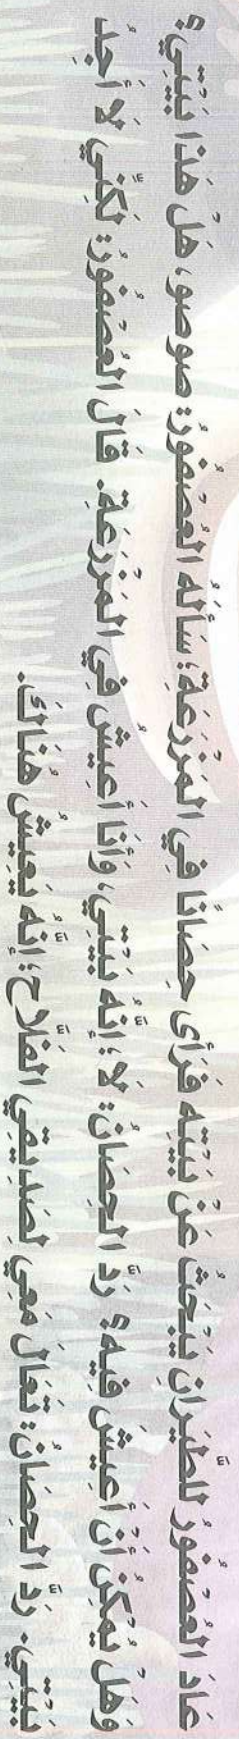 عَادَ العُصْفُورُ لِلطَّيَرانِ يَبْحَثُ عَنْ بَيْتِهِ فَرَأَى حِصَانًا فِي المَزْرَعَةِ؛ سَأَلَهُ العُصْفُورُ: صوصو، هَلْ هَذا بَيْتِي؟
وَهَلْ يُمْكِنُ أَنْ أَعِيشَ فِيهِ؟ رَدَّ الحِصَانُ: لَا؛ إِنَّهُ بَيْتِي، وَأَنَا أَعِيشُ فِي المَزْرَعَةِ. قَالَ العُصْفُورُ: لَكِنِّي لَا أَجِدُ
بَيْتِي. رَدَّ الحِصَانُ: تَعَالَ مَعِي لِصَدِيقِي الفَلَّاحِ؛ إِنَّهُ يَعِيشُ هُنَالكَ.